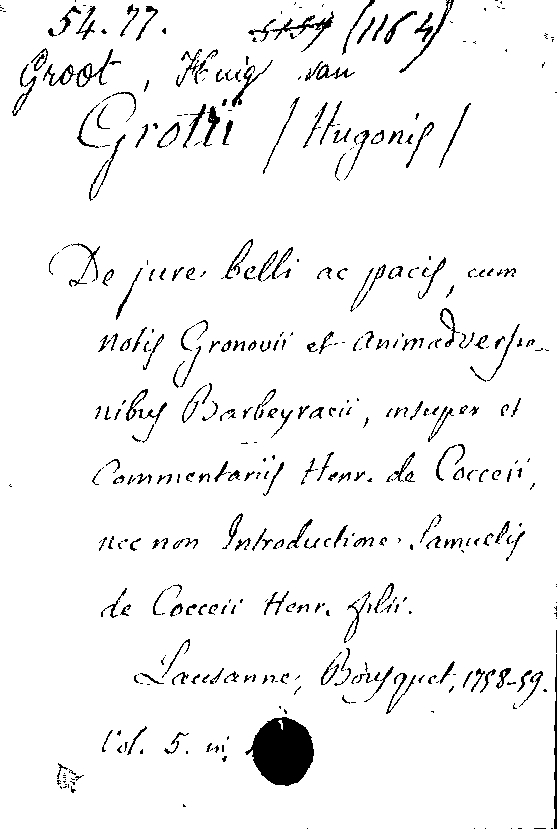 54.77. 5159 (1164)
Groot, Huig van
Grotii / Hugonis /
De jure belli ac pacis, cum
notis Gronovii et animadversio-
nibus Barbeyracii, insuper et
Commentariis Henr. de Cocceii,
nec non Introductione Samuelis
de Cocceii Henr. filii.
Lausanne, Bousquet, 1758-59.
Vol. 5. in